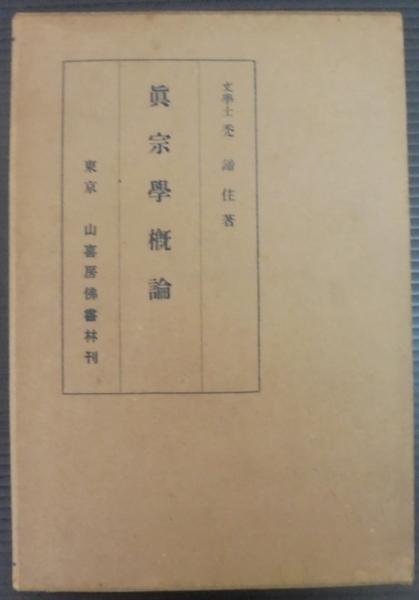 文學士 禿諦住著
眞宗學槪論
東京 山喜房佛書林刊